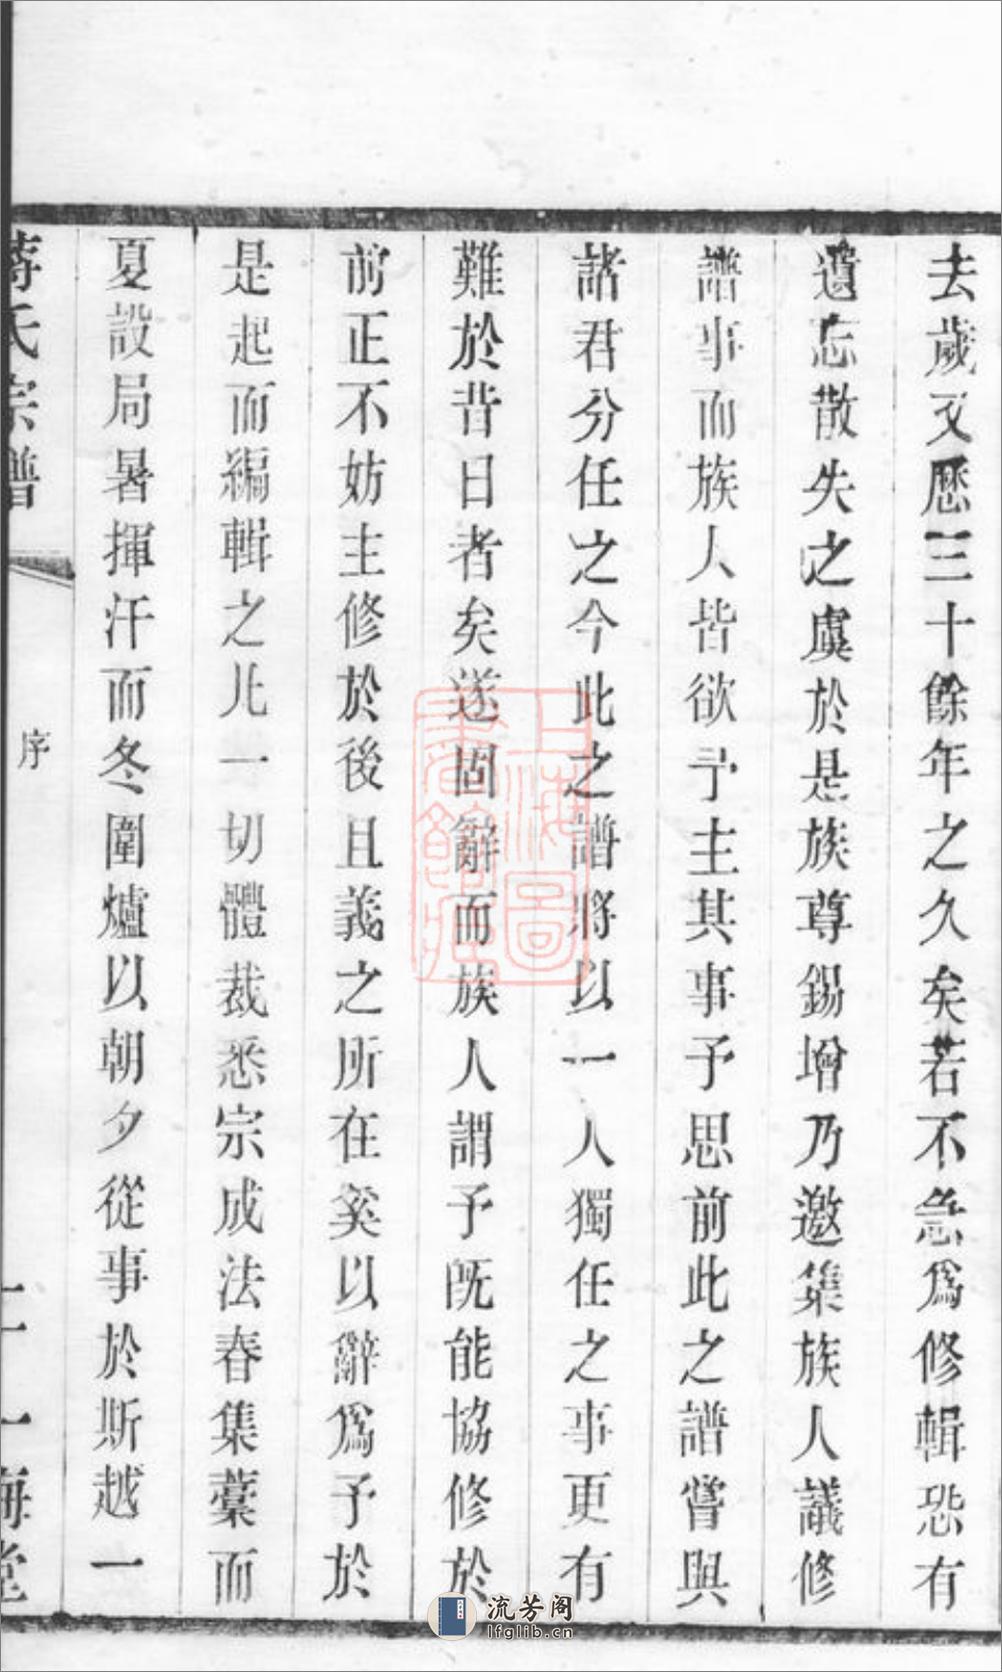 去歲又歷三十餘年之久矣若不急為修輯恐有
遺忘散失之虞於是族尊錫增乃邀集族人議修
譜事而族人皆欲予主其事予思前此之譜嘗與
諸君分任之今此之譜將以一人獨任之事更有
難於昔日者矣遂固辭而族人謂予既能協修於
前正不妨主修於後且義之所在奚以辭為予於
是起而編輯之凡一切體裁悉宗成法春集藁而
夏設局暑揮汗而冬圍爐以朝夕從事於斯越一
蔣氏宗譜
序
一梅堂
上海圖書館藏
流芳阁
lfglib.cn